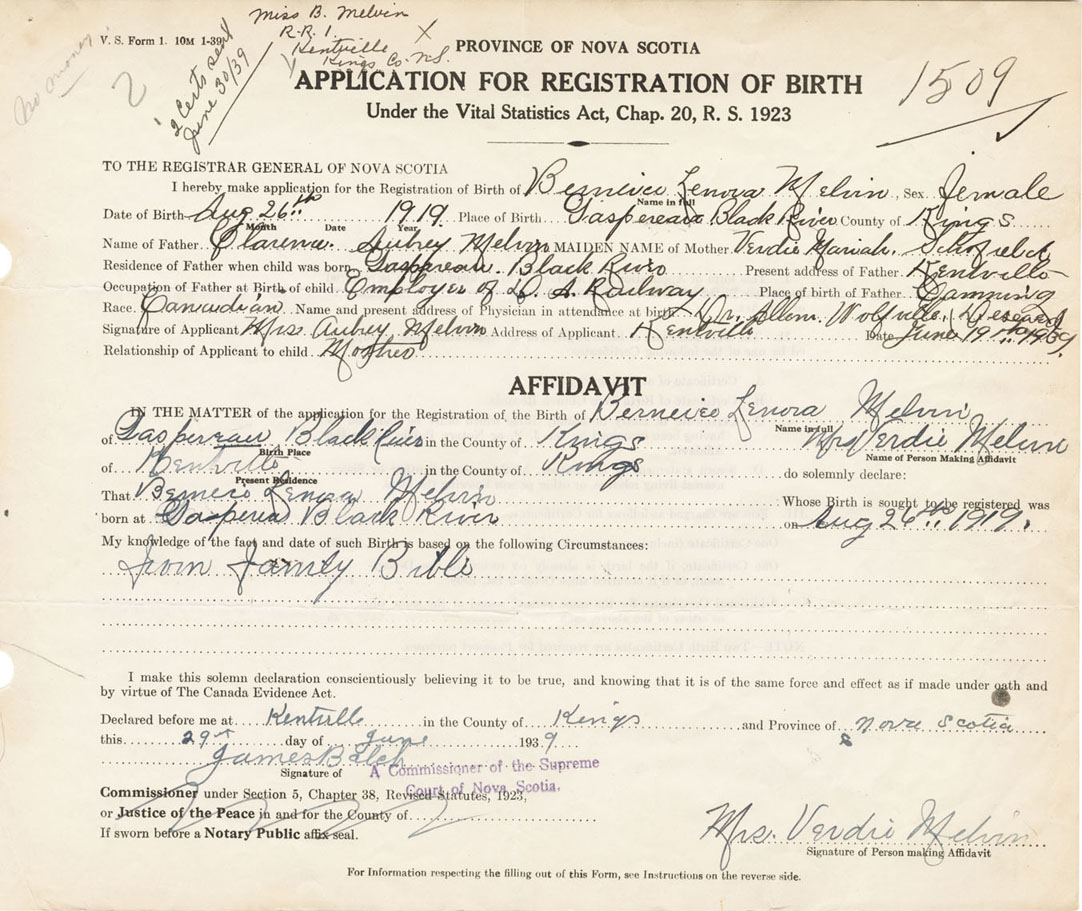 Miss B. Melvin
R.R. 1.
Kentville
Kings Co. N.S.
X
V. S. Form 1. 10M 1-39
No Money
2
2 Certs sent
June 30/39
1509
PROVINCE OF NOVA SCOTIA
APPLICATION FOR REGISTRATION OF BIRTH
Under the Vital Statistics Act, Chap. 20, R. S. 1923
TO THE REGISTRAR GENERAL OF NOVA SCOTIA
I hereby make application for the Registration of Birth of Berneice Lenora Melvin, Sex Female
Name in full
Date of Birth Aug 26th 1919. Place of Birth Gaspereau Black River County of Kings
Month Date Year
Name of Father Clarence Aubrey Melvin MAIDEN NAME of Mother Verdie Mariah. Schofield
Residence of Father when child was born Gaspereau. Black River Present address of Father Kentville
Occupation of Father at Birth of child Employee of D. A. Railway Place of birth of Father Canning
Race Canadian Name and present address of Physician in attendance at birth Dr. Wolfville,
Signature of Applicant Mrs. Aubrey Melvin Address of Applicant Kentville Date June 19th 1939
Relationship of Applicant to child Mother
AFFIDAVIT
IN THE MATTER of the application for the Registration of the Birth of Berneice Lenora Melvin
Name in full
of Gaspereau Black River in the County of Kings Mrs Verdie Melvin
Birth Place Name of Person Making Affidavit
of Kentville in the County of Kings do solemnly declare:
Present Residence
That Berneice Lenora Melvin Whose Birth is sought to be registered was
born at Gasperea Black River on Aug 26th 1919.
My knowledge of the fact and date of such Birth is based on the following Circumstances:
from Family Bible
I make this solemn declaration conscientiously believing it to be true, and knowing that it is of the same force and effect as if made under oath and
by virtue of The Canada Evidence Act.
Declared before me at Kentville in the County of Kings and Province of Nova Scotia
this 29th day of June 1939
James Balch
Signature of A Commissioner of the Supreme
Court of Nova Scotia.
Commissioner under Section 5, Chapter 38, Revised Statutes, 1923,
or Justice of the Peace in and for the County of
If sworn before a Notary Public affix seal.
Mrs. Verdie Melvin
Signature of Person making Affidavit
For Information respecting the filling out of this Form, see Instructions on the reverse side.